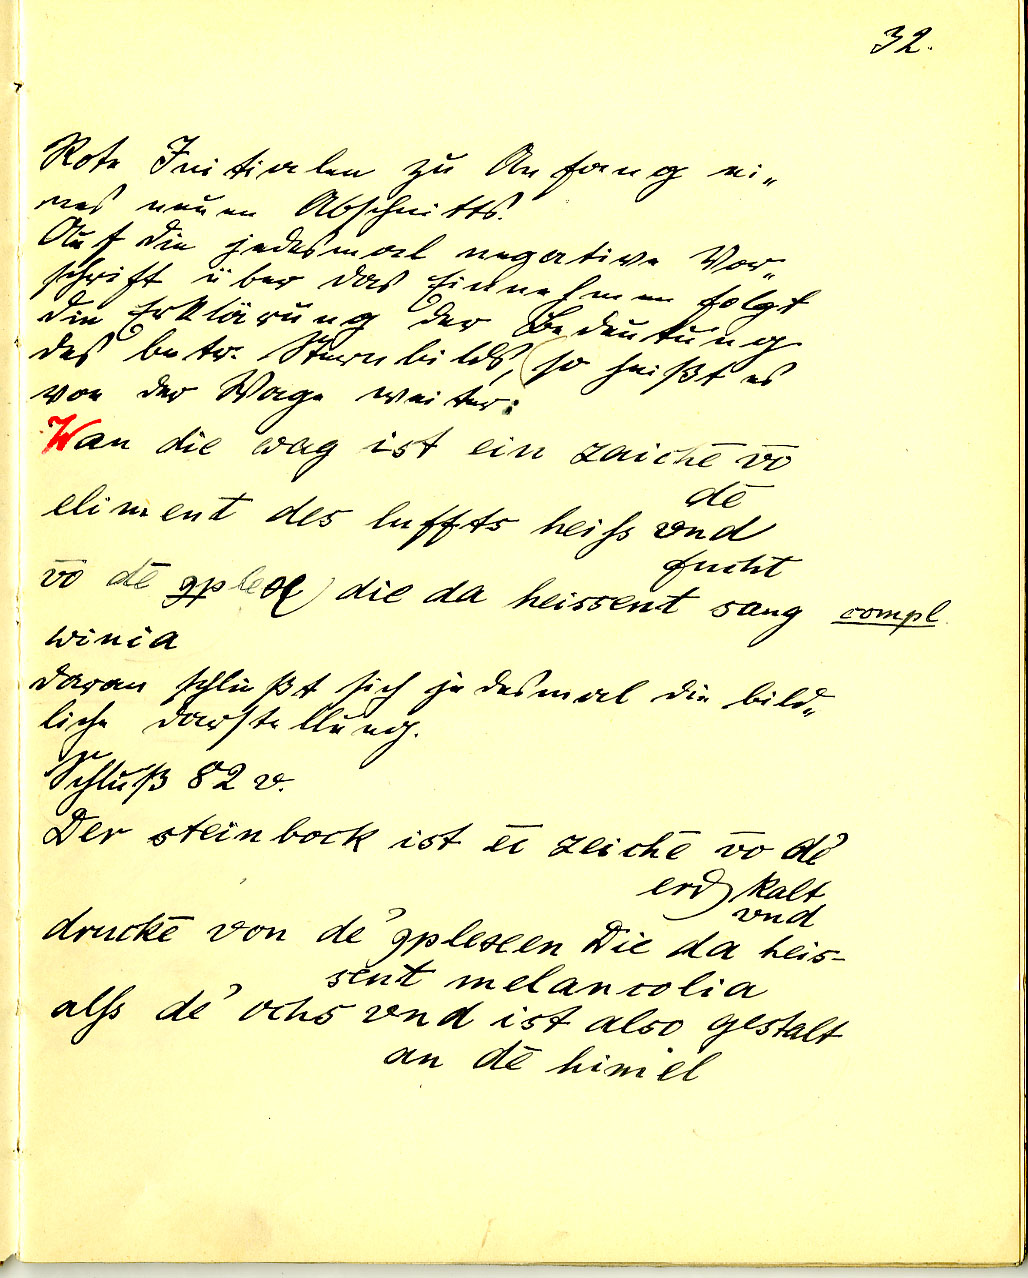 32.
Rote Initialen zu Anfang ei„
nes neuen Abschnitts.
Auf die jedesmal negative Vor„
schrift über das Einnehmen folgt
die Erklärung der Bedeutung
des betr. Sternbilds, so heißt es
von der Wage weiter:
Wan die wag ist ein zaichē vō
dē
eliment des luffts heiſs vnd
fucht
vō dē gplex die da heissent sang compl.
winia
daran schließt sich jedesmal die bild„
liche darstellung.
Schluß 82 v.
Der steinbock ist ēi zeichē vō de'
erd kalt
vnd
druckē von de' gplexen Die da heis-
sent melancolia
alſs de' ochs vnd ist also gestalt
an dē himel